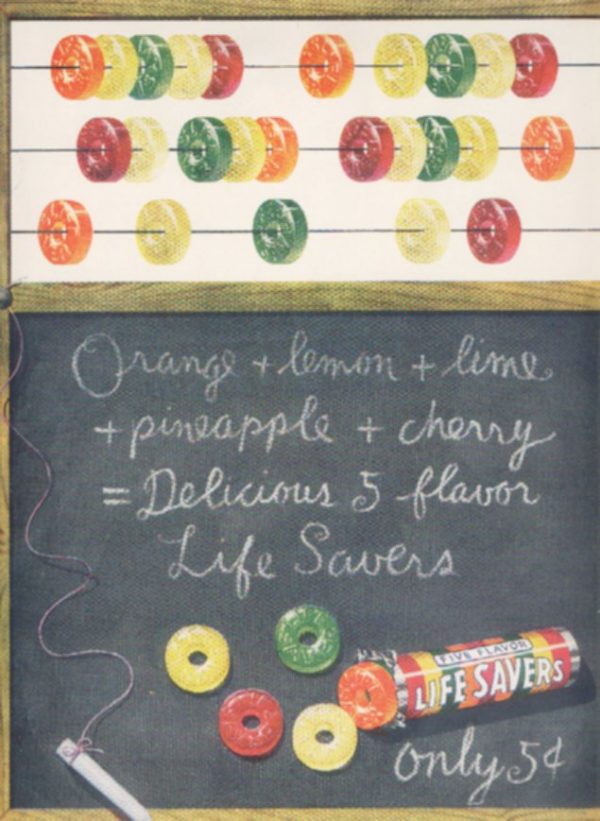 Orange + lemon + lime
+ pineapple + cherry
= Delicious 5 flavor
Life Savers
FIVE FLAVOR
LIFE SAVERS
only 5¢